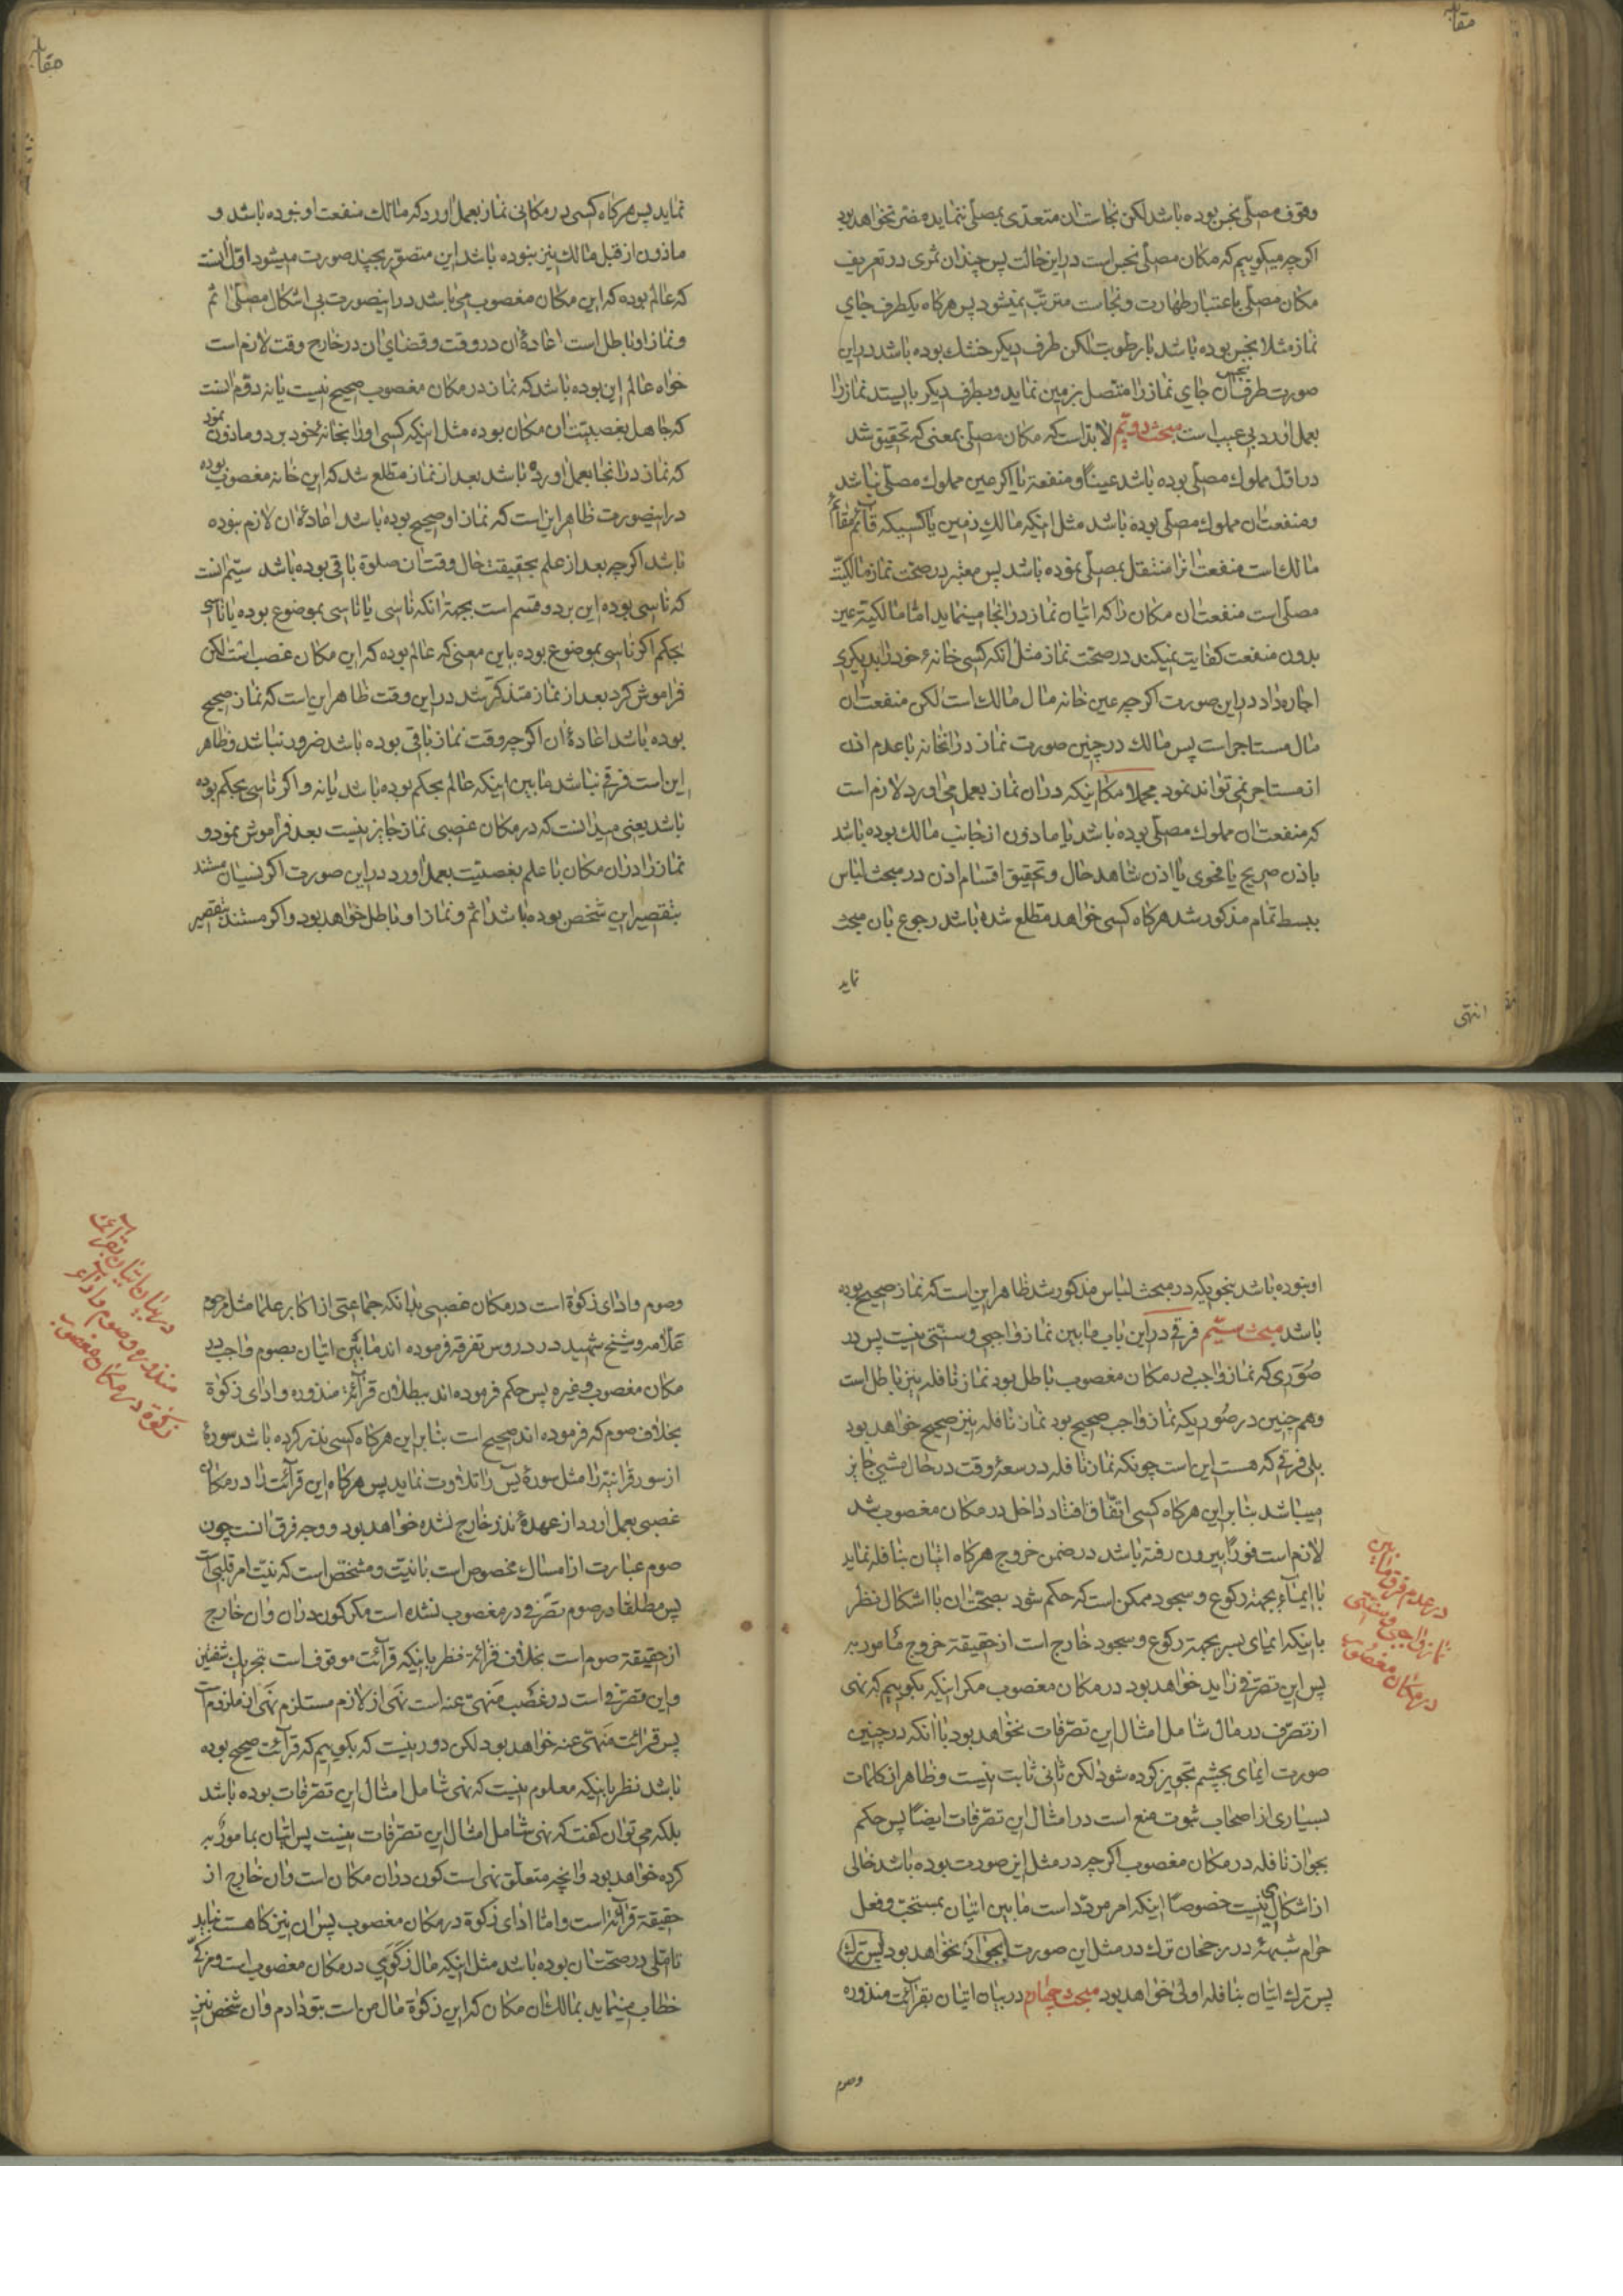 مقابله
وقوف مصلّی نجس بوده باشد لکن نجاست ان متعدّی بمصلّی ننماید مضرّ نخواهد بود
اکرچه میکوییم که مکان مصلّی نجس است در این حالت پس چندان ثمری در تعریف
مکان مصلّی باعتبار طهارت و نجاست مترتّب نمیشود پس هرکاه یکطرف جای
نماز مثلا نجس بوده باشد با رطوبت لکن طرف دیکر خشك بوده باشد در این
صورت طرف نجس ان جای نماز را متّصل بزمین نماید و بطرف دیکر بایستد نماز را
بعمل اورد بی عیب است مبحث دویّم لابدّ است که مکان مصلّی بمعنی که تحقیق شد
در اوّل مملوك مصلّی بوده باشد عیناً و منفعة یا اکر عین مملوك مصلّی نباشد
و منفعت ان مملوك مصلّی بوده باشد مثل اینکه مالك زمین یا کسیکه قائم مقام
مالك است منفعت انرا منتقل بمصلّی نموده باشد پس معتبر در صحّت نماز مالکیّت
مصلّی است منفعت ان مکان را که اتیان نماز در انجا مینماید امّا مالکیّة عین
بدون منفعت کفایت نمیکند در صحّت نماز مثل انکه کسی خانهٔ خود را بدیکری
اجاره داد در این صورت اکرچه عین خانه مال مالك است لکن منفعت ان
مال مستاجر است پس مالك در چنین صورت نماز در انخانه با عدم اذن
از مستاجر نمی تواند نمود مجملا مکانیکه در ان نماز بعمل می اورد لازم است
که منفعت ان مملوك مصلّی بوده باشد یا ماذون از جانب مالك بوده باشد
باذن صریح یا فحوی یا اذن شاهد حال و تحقیق اقسام اذن در مبحث لباس
ببسط تمام مذکور شد هرکاه کسی خواهد مطلع شده باشد رجوع بان مبحث
نماید
انتهی
مقابله
نماید پس هرکاه کسی در مکانی نماز بعمل اورد که مالك منفعت او نبوده باشد و
ماذون از قبل مالك نیز نبوده باشد این متصوّر بچند صورت میشود اوّل انست
که عالم بوده که این مکان مغصوب می باشد در اینصورت بی اشکال مصلّی اثم
و نماز او باطل است اعادهٔ ان در وقت و قضای ان در خارج وقت لازم است
خواه عالم این بوده باشد که نماز در مکان مغصوب صحیح نیست یا نه دوّم انست
که جاهل بغصبیّت ان مکان بوده مثل اینکه کسی او را بخانهٔ خود برد و ماذون نمود
که نماز در انجا بعمل اورده باشد بعد از نماز مطّلع شد که این خانه مغصوب بوده
در اینصورت ظاهر این است که نماز او صحیح بوده باشد اعادهٔ ان لازم نبوده
باشد اکرچه بعد از علم بحقیقت حال وقت ان صلوة باقی بوده باشد سیّم انست
که ناسی بوده این بر دو قسم است بجهة انکه ناسی یا ناسی بموضوع بوده یا ناسی
بحکم اکر ناسی بموضوع بوده باین معنی که عالم بوده که این مکان غصب است لکن
فراموش کرد بعد از نماز متذکّر شد در این وقت ظاهر این است که نماز صحیح
بوده باشد اعادهٔ ان اکرچه وقت نماز باقی بوده باشد ضرور نباشد و ظاهر
این است فرقی نباشد مابین اینکه عالم بحکم بوده باشد یا نه و اکر ناسی بحکم بوده
باشد یعنی میدانست که در مکان غصبی نماز جایز نیست بعد فراموش نمود و
نماز را در ان مکان با علم بغصبیّت بعمل اورد در این صورت اکر نسیان مستند
بتقصیر این شخص بوده باشد اثم و نماز او باطل خواهد بود و اکر مستند بتقصیر
او نبوده باشد بنحویکه در مبحث لباس مذکور شد ظاهر این است که نماز صحیح بوده
باشد مبحث سیّم فرقی در این باب مابین نماز واجبی و سنّتی نیست پس در
صوری که نماز واجب در مکان مغصوب باطل بود نماز نافله نیز باطل است
و هم چنین در صوریکه نماز واجب صحیح بود نماز نافله نیز صحیح خواهد بود
بلی فرقی که هست این است چونکه نماز نافله در سعهٔ وقت در حال مشی جایز
میباشد بنابراین هرکاه کسی اتّفاق افتاد داخل در مکان مغصوب شد
لازم است فوراً بیرون رفته باشد در ضمن خروج هرکاه اتیان بنافله نماید
با ایماء بجهة رکوع و سجود ممکن است که حکم شود بصحّت ان با اشکال نظر
باینکه ایمای بسر بجهة رکوع و سجود خارج است از حقیقة خروج مامور به
پس این تصرّفی زاید خواهد بود در مکان مغصوب مکر اینکه بکوییم که نهی
از تصرّف در مال شامل امثال این تصرّفات نخواهد بود یا انکه در چنین
صورت ایمای بچشم تجویز کرده شود لکن ثانی ثابت نیست و ظاهر از کلمات
بسیاری از اصحاب ثبوت منع است در امثال این تصرّفات ایضاً پس حکم
بجواز نافله در مکان مغصوب اکرچه در مثل این صورت بوده باشد خالی
از اشکالی نیست خصوصاً اینکه امر مردّد است مابین اتیان بمستحبّ و فعل
حرام شبههٔ در رجحان ترك در مثل این صورت بجواز نخواهد بود پس ترك
پس ترك اتیان بنافله اولی خواهد بود مبحث چهارم در بیان اتیان بقرائت منذوره
وصوم
در عدم فرق مابین
نماز واجبی و سنتی
در مکان مغصوب
و صوم و ادای زکوة است در مکان غصبی بدانکه جماعتی از اکابر علما مثل مرحوم
علّامه و شیخ شهید در دروس تفرقه فرموده اند مابین اتیان بصوم واجب در
مکان مغصوب و غیره پس حکم فرموده اند ببطلان قرائة منذوره و ادای زکوة
بخلاف صوم که فرموده اند صحیح است بنابراین هرکاه کسی نذر کرده باشد سورهٔ
از سور قرانیّه را مثل سورهٔ یس را تلاوت نماید پس هرکاه این قرائت را در مکان
غصبی بعمل اورد از عهدهٔ نذر خارج نشده خواهد بود و وجه فرق انست چون
صوم عبارت از امساك مخصوص است با نیّت و مشخّص است که نیّت امر قلبی است
پس مطلقا در صوم تصرّفی در مغصوب نشده است مکر کون در ان و ان خارج
از حقیقة صوم است بخلاف قرائة نظر باینکه قرائت موقوف است بتحریك شفتین
و این تصرّفی است در غصب منهیّ عنه است نهی از لازم مستلزم نهی از ملزوم است
پس قرائت منهیّ عنه خواهد بود لکن دور نیست که بکوییم که قرائت صحیح بوده
باشد نظر باینکه معلوم نیست که نهی شامل امثال این تصرّفات بوده باشد
بلکه می توان کفت که نهی شامل امثال این تصرّفات نیست پس اتیان بمامور به
کرده خواهد بود و انچه متعلّق نهی است کون در ان مکان است و ان خارج از
حقیقة قرائة است و امّا ادای زکوة در مکان مغصوب پس ان نیز کاهست نباید
تامّلی در صحّت ان بوده باشد مثل اینکه مال زکوی در مکان مغصوب است و مزکّی
خطاب مینماید بمالك ان مکان که این زکوة مال من است بتو دادم و ان شخص نیز
در بیان اتیان بقرائت
منذوره و صوم و اداء
زکوة در مکان مغصوب